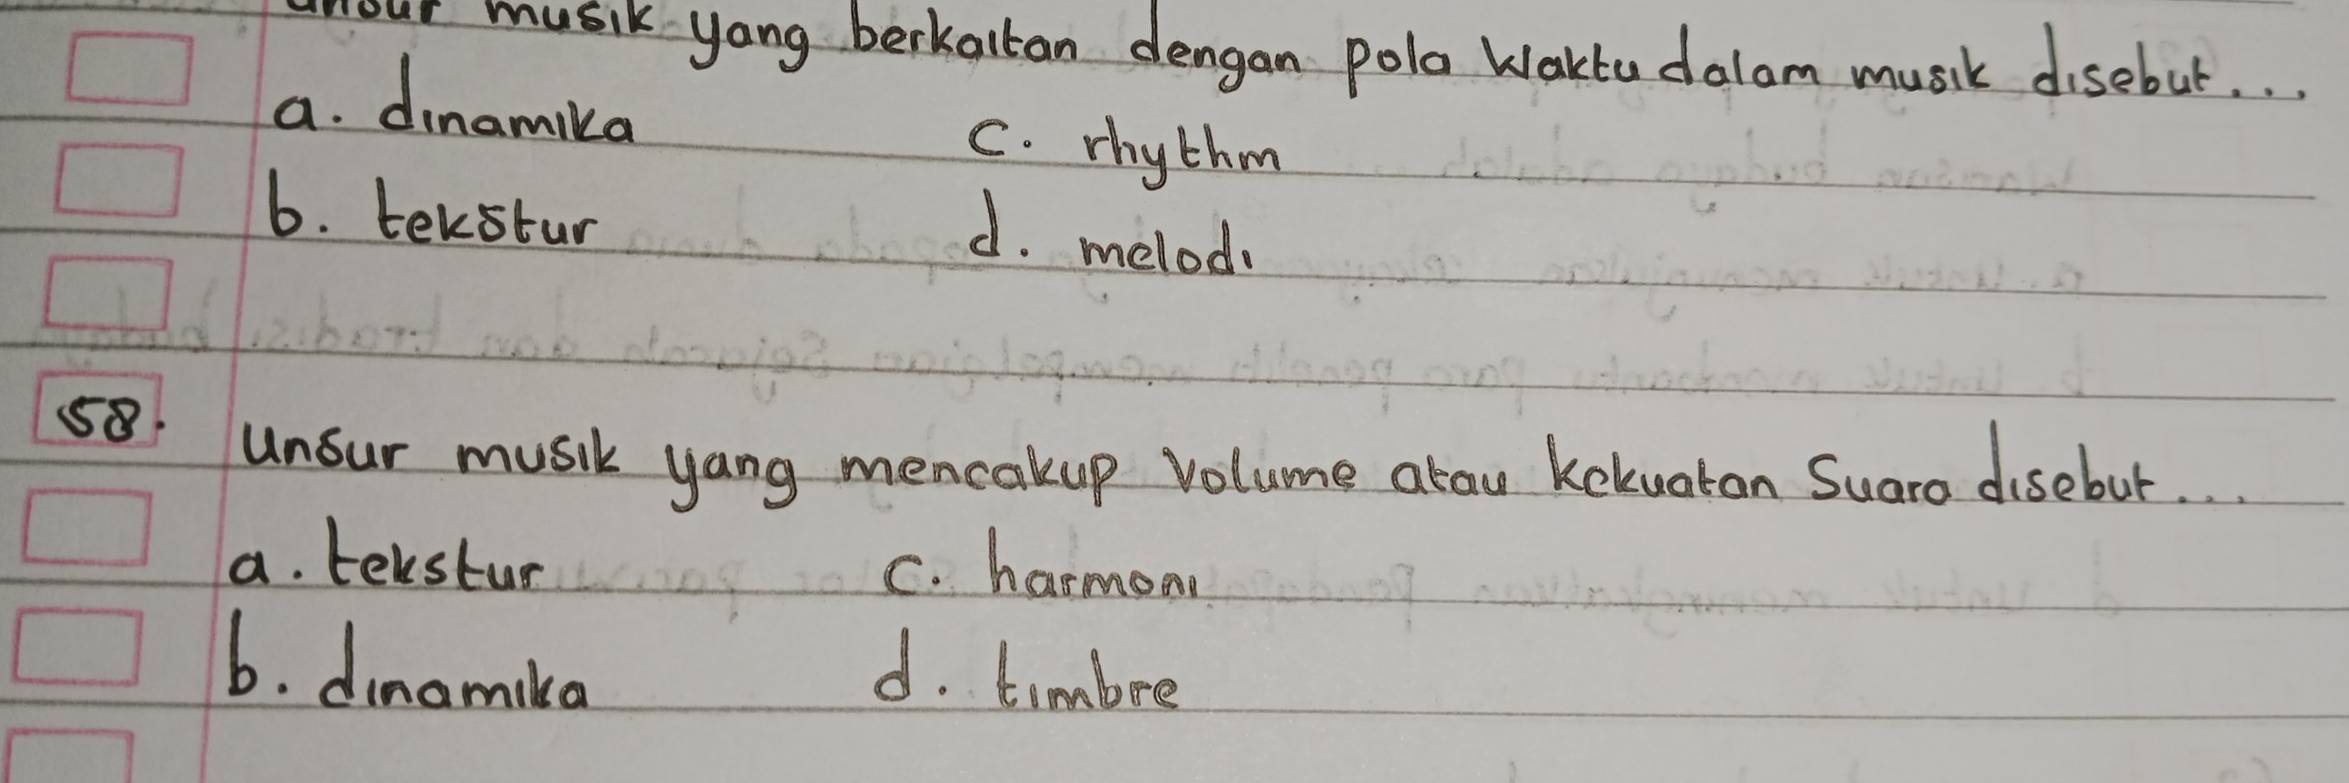 unsur musik yang berkaitan dengan pola waktu dalam musik disebut...
a. dinamika c. rhythm
b. tekstur d. melodi
58. unsur musik yang mencakup volume atau kekuatan suara disebut...
a. tekstur c. harmoni
b. dinamika d. timbre